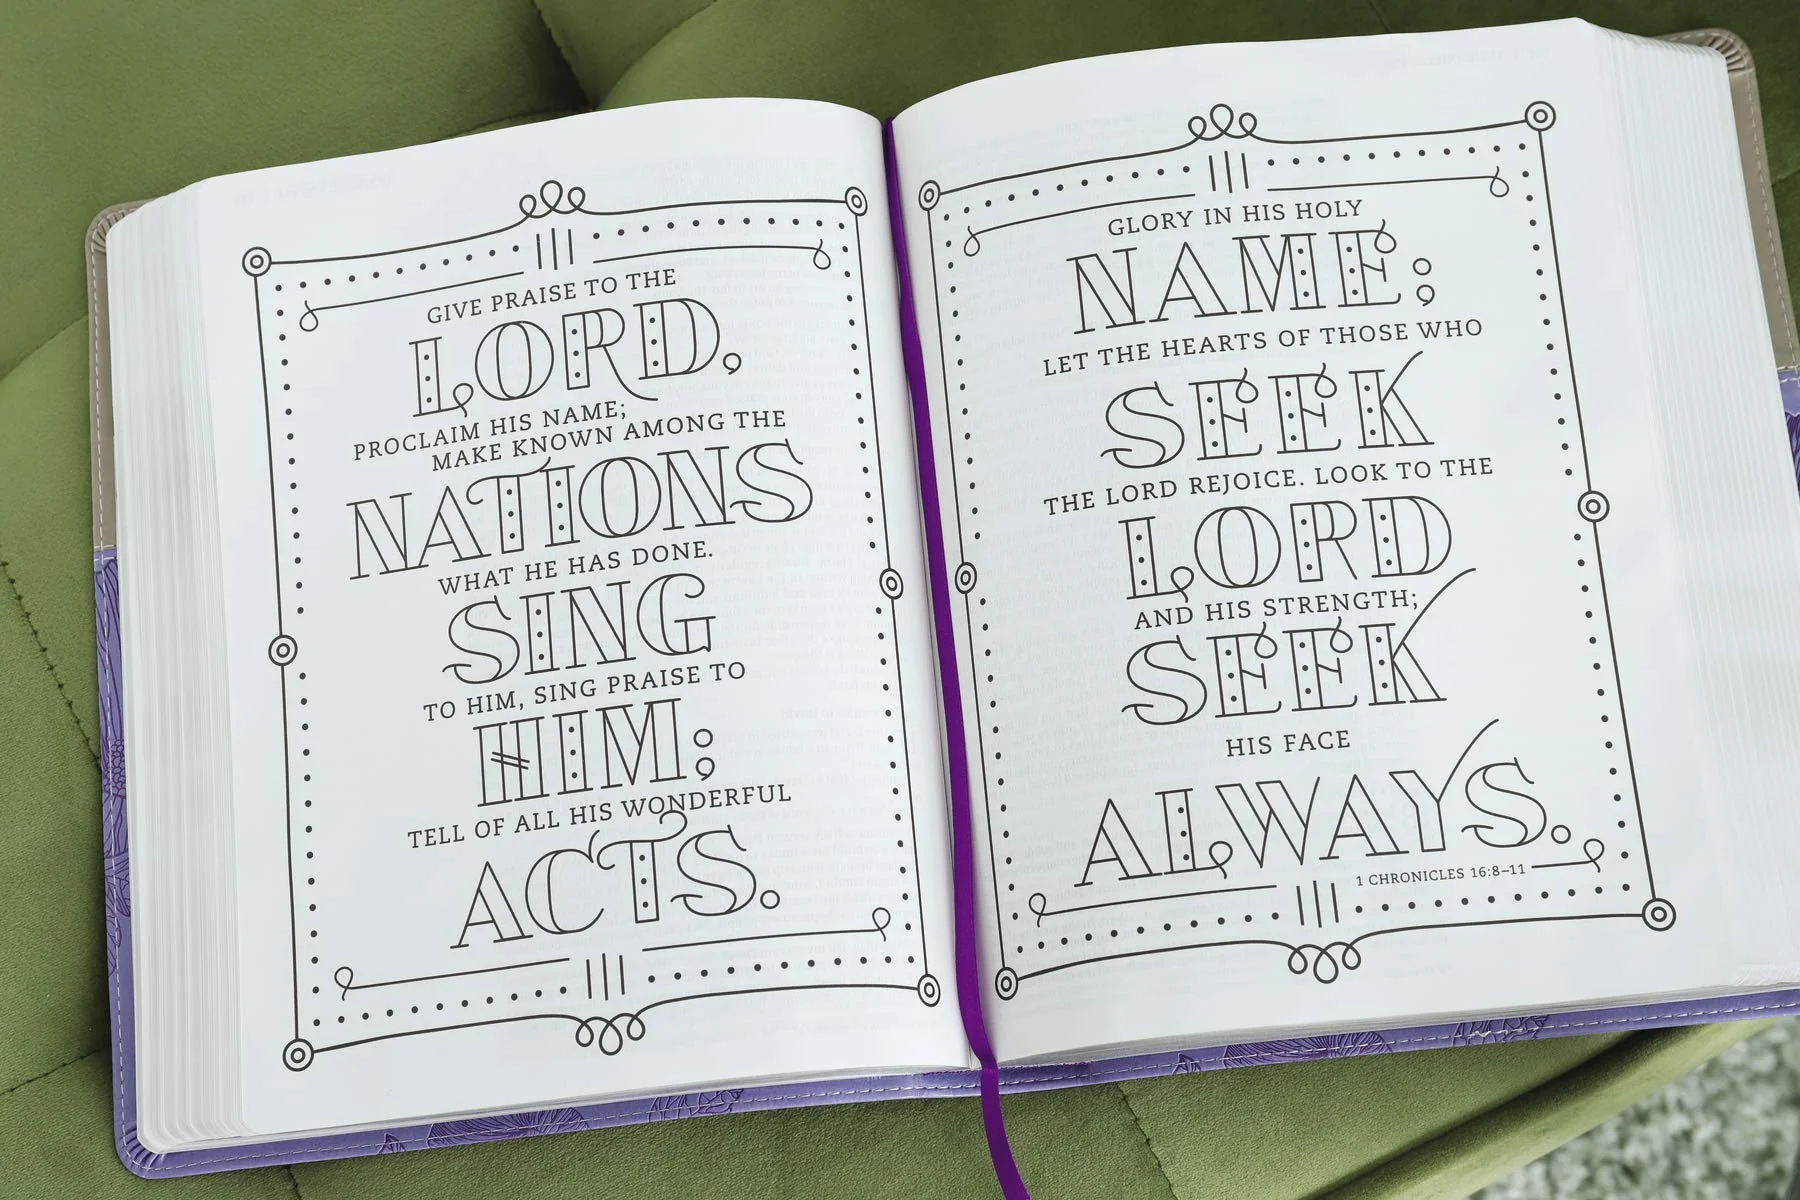 GIVE PRAISE TO THE
LORD,
PROCLAIM HIS NAME;
MAKE KNOWN AMONG THE
NATIONS
WHAT HE HAS DONE.
SING
TO HIM, SING PRAISE TO
HIM;
TELL OF ALL HIS WONDERFUL
ACTS.
GLORY IN HIS HOLY
NAME;
LET THE HEARTS OF THOSE WHO
SEEK
THE LORD REJOICE. LOOK TO THE
LORD
AND HIS STRENGTH;
SEEK
HIS FACE
ALWAYS.
1 CHRONICLES 16:8–11